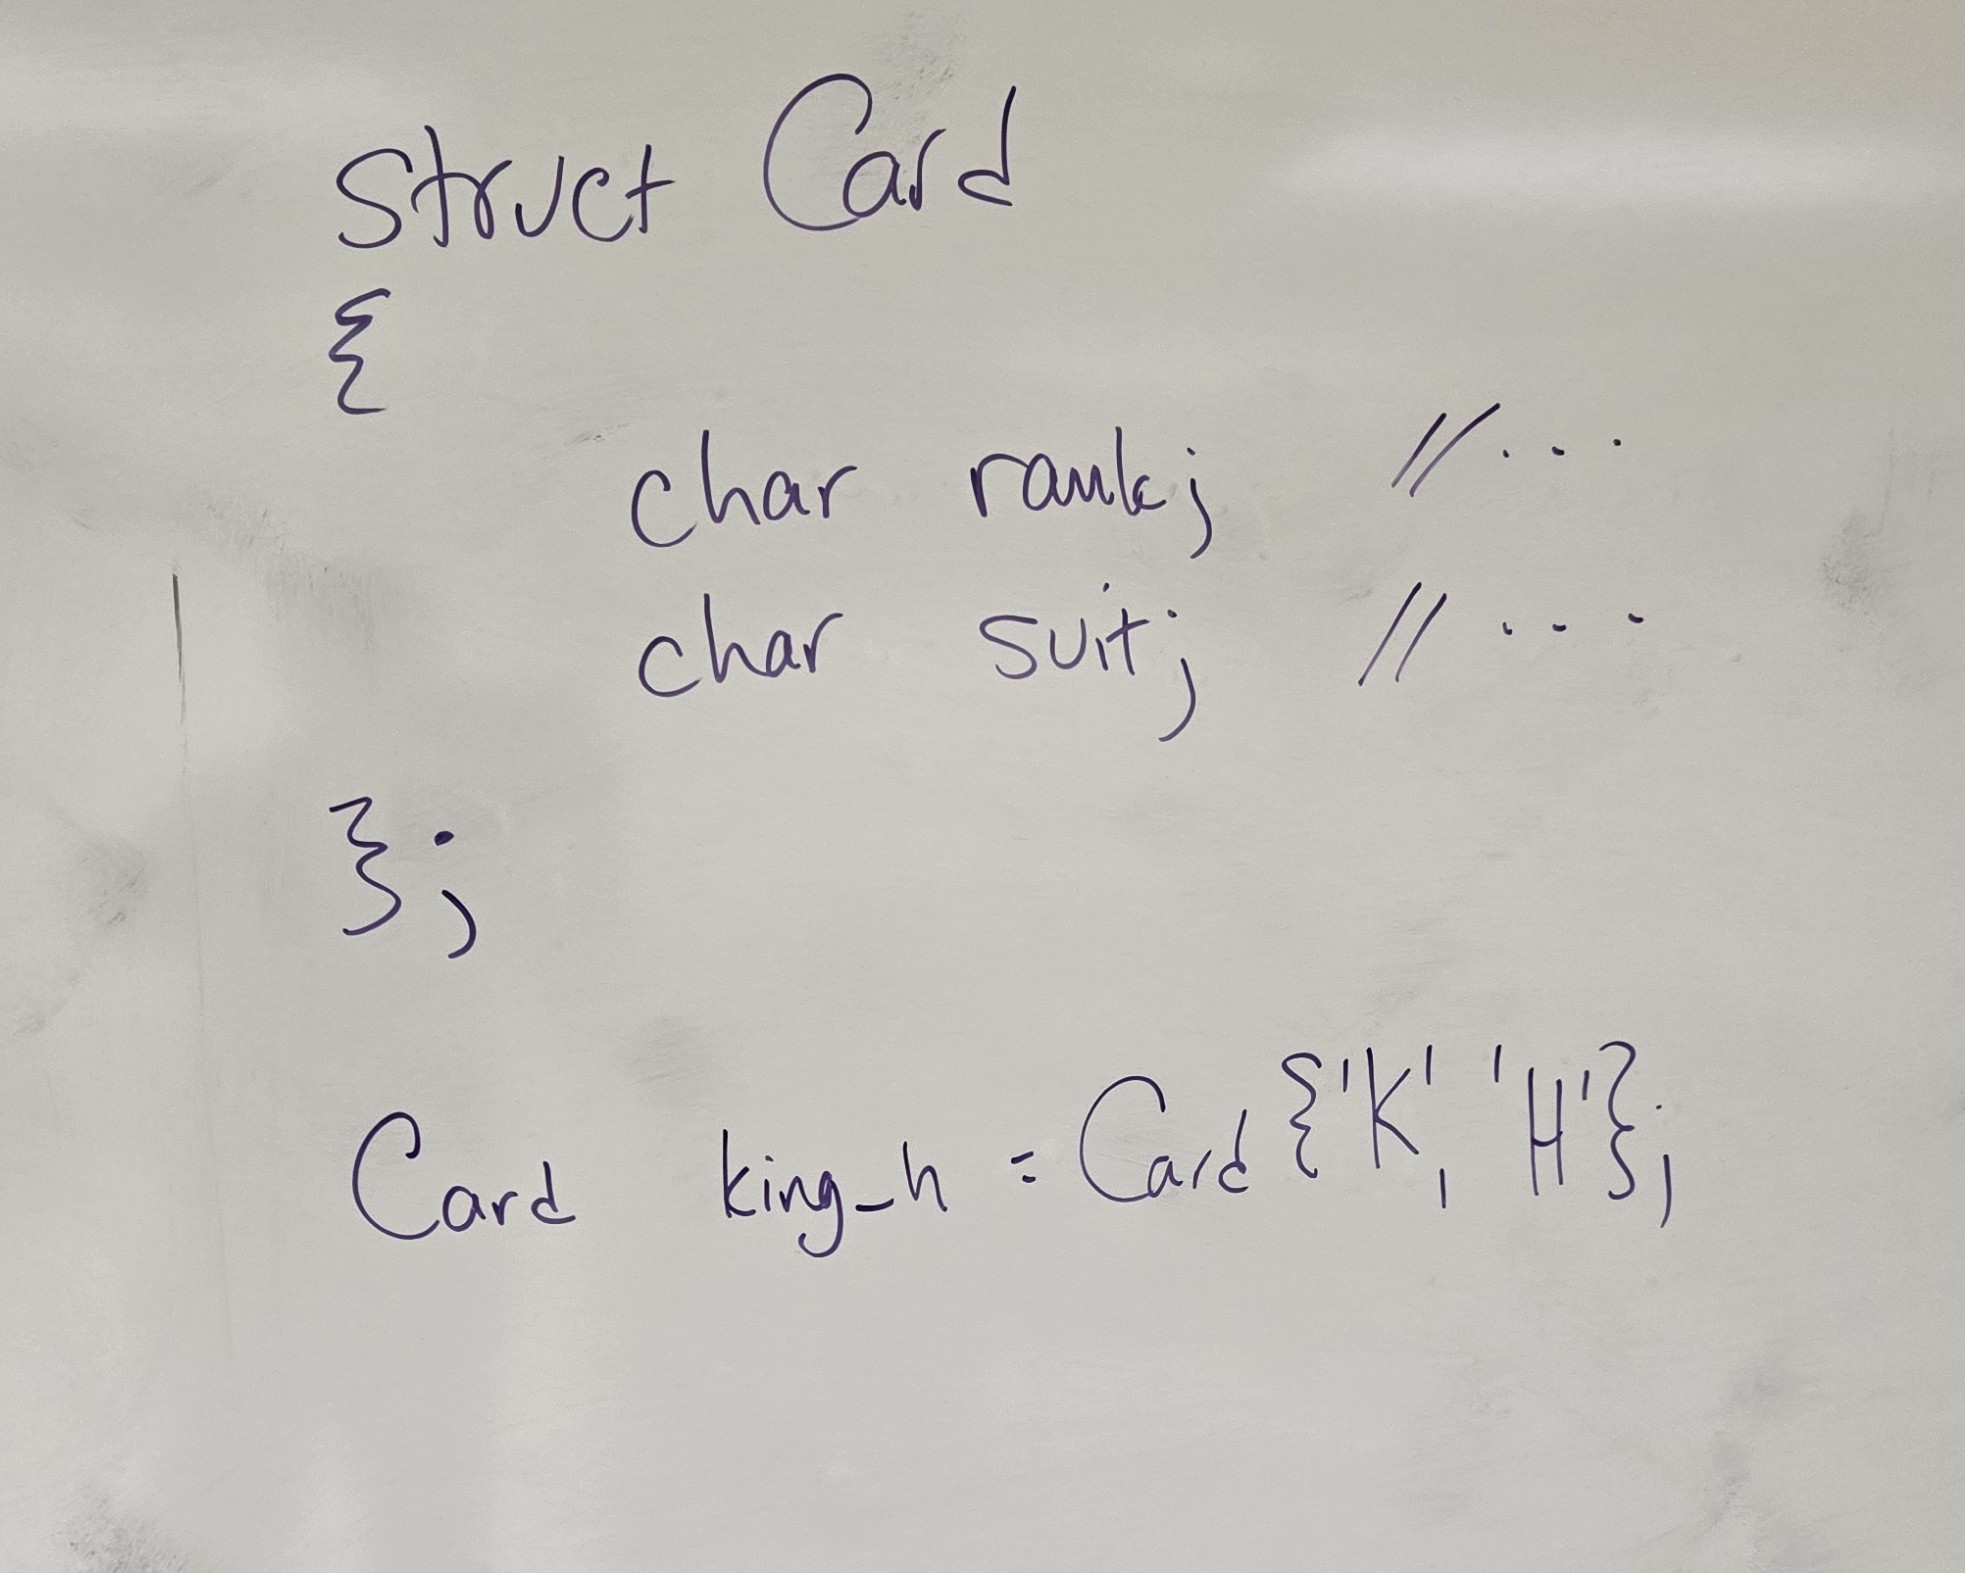 struct Card
{
char rank; // ...
char suit; // ...
};
Card king_h = Card{'K', 'H'};